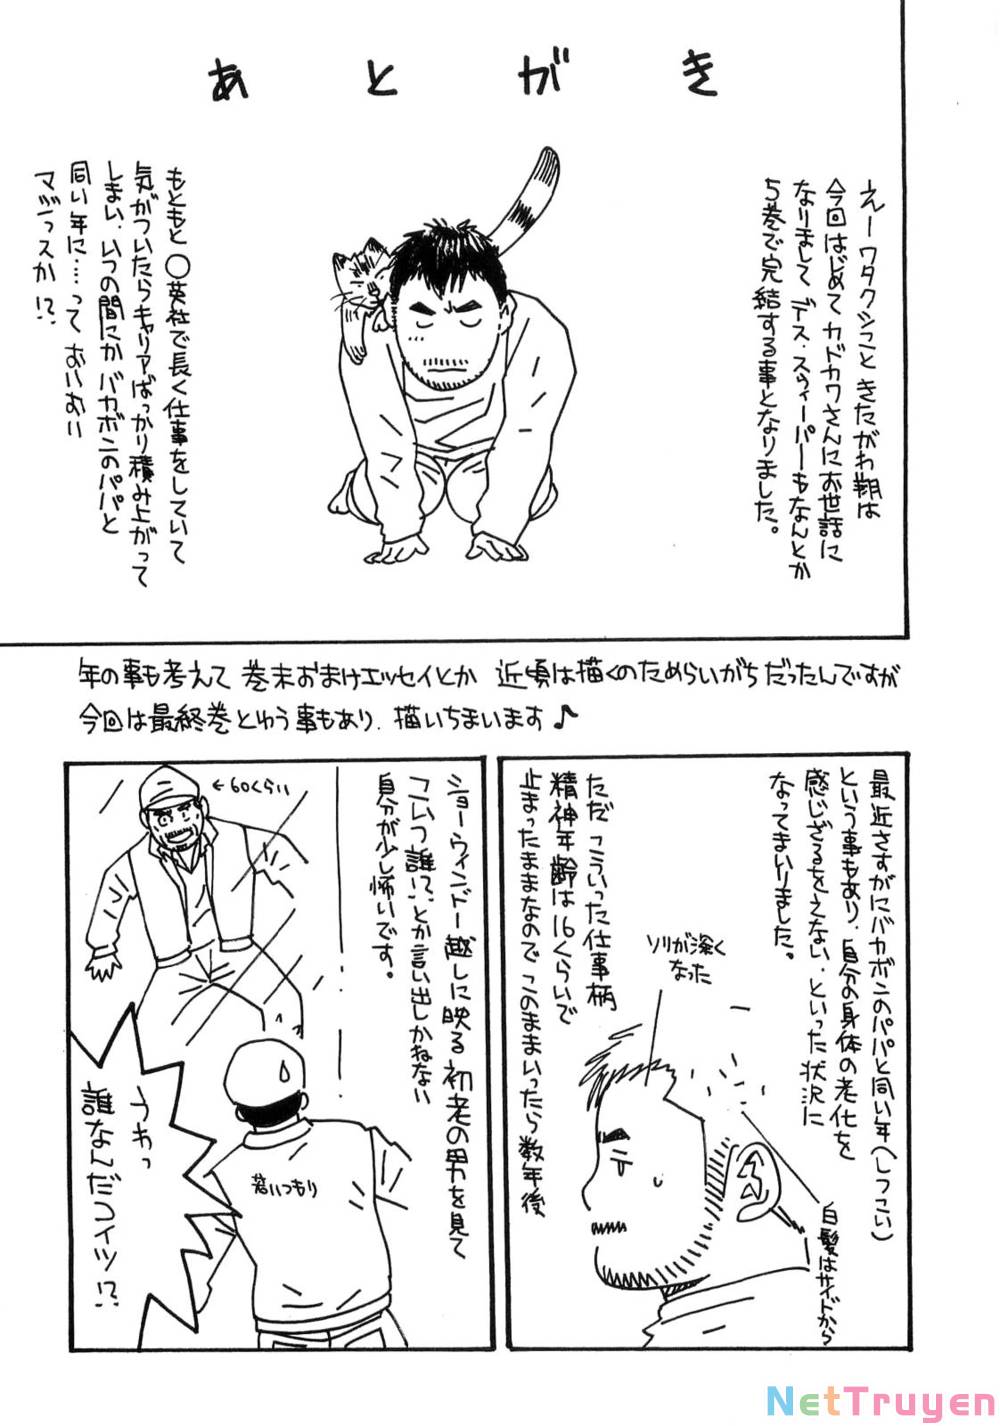 あとがき
えーワタクシこと きたがわ翔は
今回はじめて カドカワさんにお世話に
なりまして デス・スウィーパーもなんとか
5巻で完結する事となりました。
もともと〇英社で長く仕事をしていて
気がついたらキャリアばっかり積み上がって
しまい、いつの間にか バカボンのパパと
同い年に……って おいおい
マジっスか!?
年の事も考えて 巻末おまけエッセイとか 近頃は描くのためらいがちだったんですが
今回は最終巻とゆう事もあり、描いちまいます♪
最近さすがにバカボンのパパと同い年(しつこい)
という事もあり、自分の身体の老化を
感じざるをえない、といった状況に
なってまいりました。
ソリが深く
なった
白髪はサイドから
ただ こういった仕事柄
精神年齢は16くらいで
止まったままなので このままいったら数年後
ショーウィンドー越しに映る初老の男を見て
コいつ誰!?とか言い出しかねない
自分が少し怖いです。
←60くらい
若いつもり
うわっ
誰なんだコイツ!?
NetTruyen